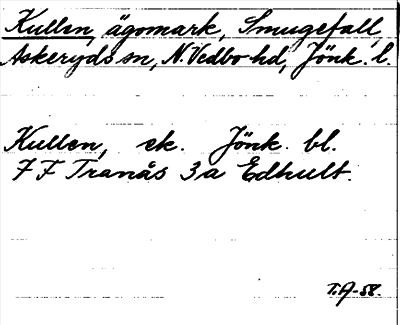 Kullen, ägomark, Smugefall,
Askeryds sn, N. Vedbo hd, Jönk. l.
Kullen, ek. Jönk. bl.
7 F Tranås 3a Edhult.
T.A-58.